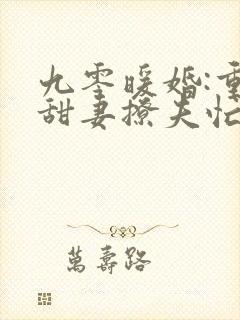 九零暖婚:重
甜妻撩夫忙
萬壽路